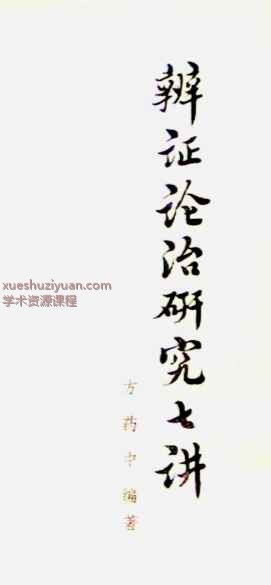 辨证论治研究七讲
方药中编著
xueshuziyuan.com
学术资源课程